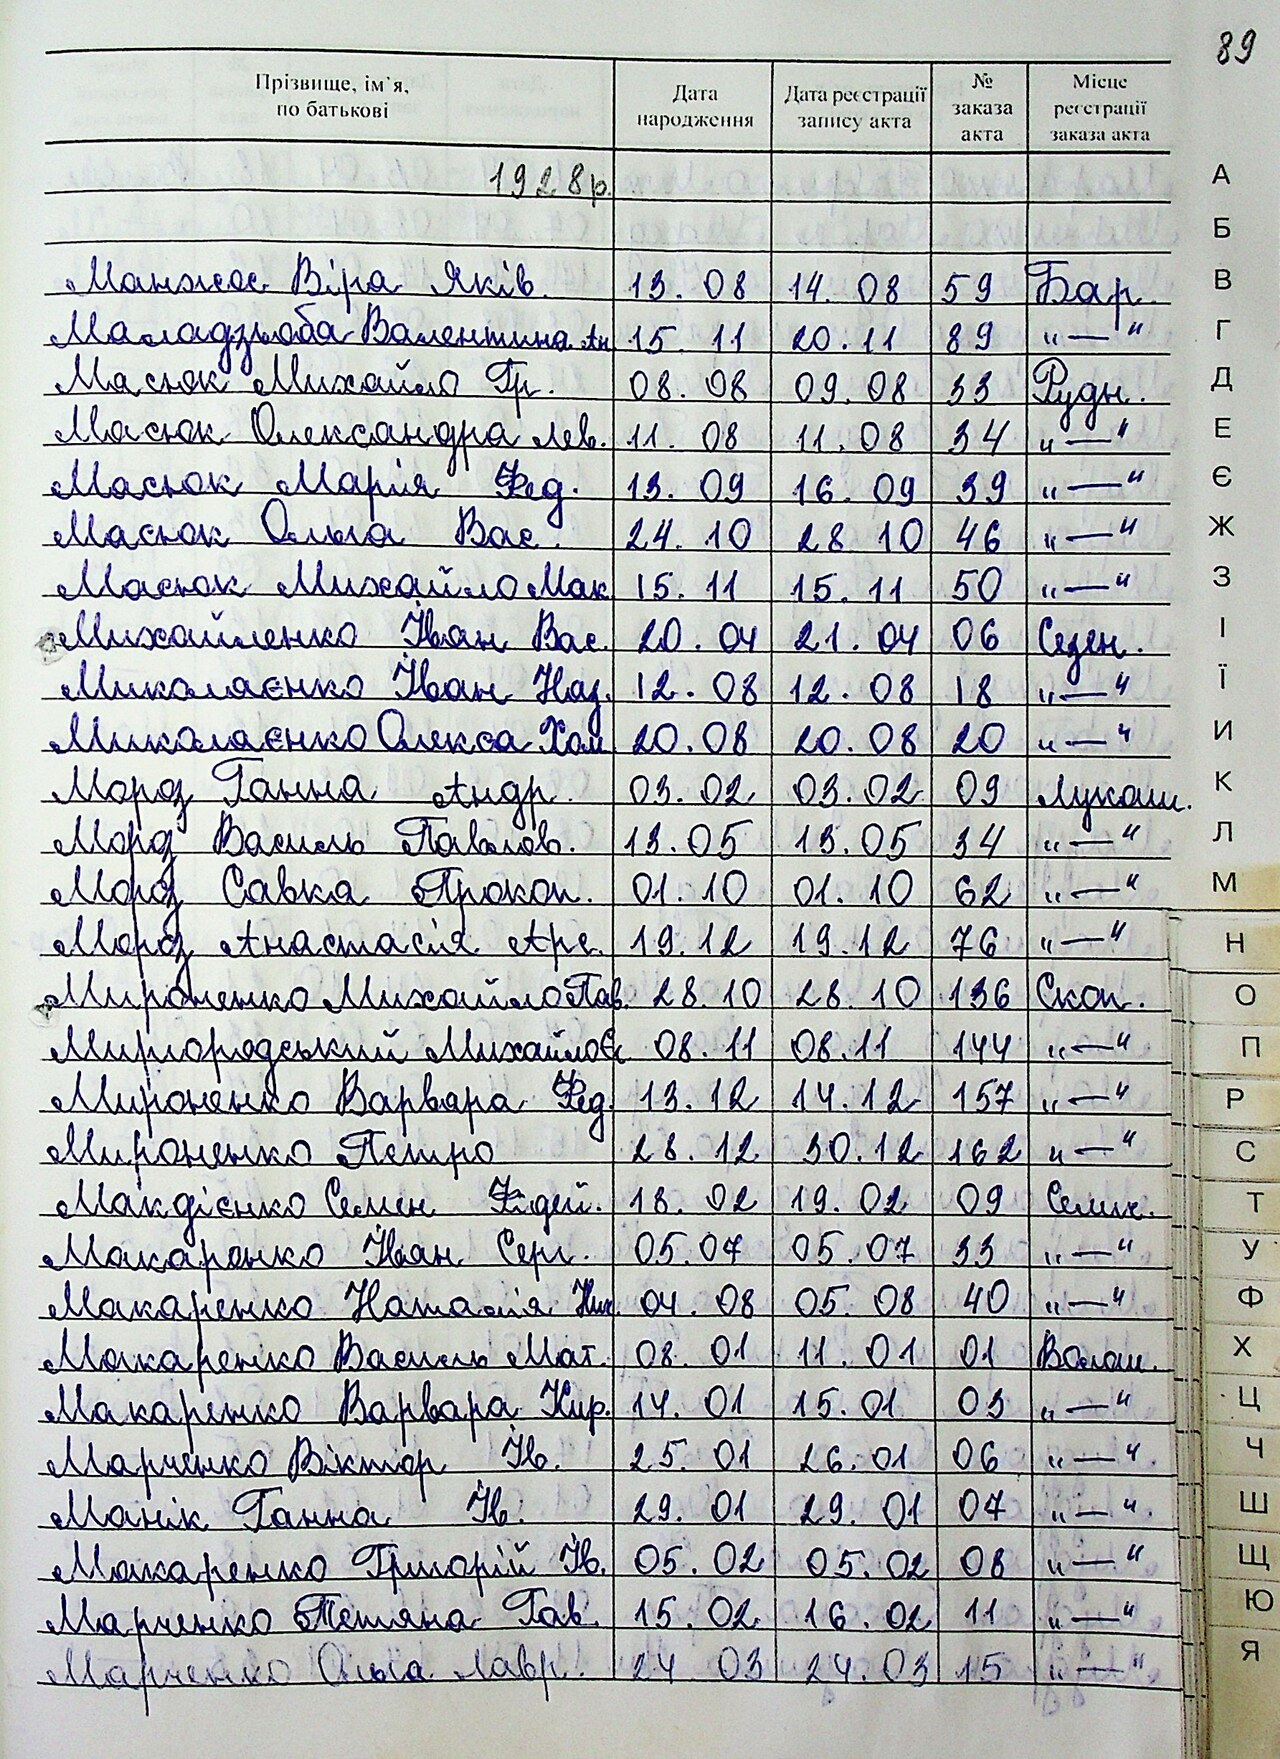 89
Прізвище, ім'я, по батькові Дата народження Дата реєстрації запису акта № заказа акта Місце реєстрації заказа акта
1928р.
Манжос Віра Яків. 13. 08 14. 08 59 Бар.
Маладзьоба Валентина Ан. 15. 11 20. 11 89 „—“
Масюк Михайло Гр. 08. 08 09. 08 33 Рудн.
Масюк Олександра Лев. 11. 08 11. 08 34 „—“
Масюк Марія Фед. 13. 09 16. 09 39 „—“
Масюк Ольга Вас. 24. 10 28. 10 46 „—“
Масюк Михайло Мак. 15. 11 15. 11 50 „—“
Михайленко Іван Вас. 20. 04 21. 04 06 Седен.
Миколаєнко Іван Наз. 12. 08 12. 08 18 „—“
Миколаєнко Олекса Хом. 20. 08 20. 08 20 „—“
Мороз Ганна Андр. 03. 02 03. 02 09 Лукаш.
Мороз Василь Павлов. 13. 05 13. 05 34 „—“
Мороз Савка Прокоп. 01. 10 01. 10 62 „—“
Мороз Анастасія Арс. 19. 12 19. 12 76 „—“
Мироненко Михайло Пав. 28. 10 28. 10 136 Скоп.
Миргородський Михайло Є. 08. 11 08. 11 144 „—“
Мироненко Варвара Фед. 13. 12 14. 12 157 „—“
Мироненко Петро 28. 12 30. 12 162 „—“
Макдієнко Семен Фадей. 18. 02 19. 02 09 Селич.
Макаренко Іван Серг. 05. 07 05. 07 33 „—“
Макаренко Наталія Ник. 04. 08 05. 08 40 „—“
Макаренко Василь Мат. 08. 01 11. 01 01 Волош.
Макаренко Варвара Кир. 14. 01 15. 01 03 „—“
Марченко Віктор Ів. 25. 01 26. 01 06 „—“
Манік Ганна Ів. 29. 01 29. 01 07 „—“
Макаренко Григорій Ів. 05. 02 05. 02 08 „—“
Марченко Тетяна Гав. 15. 02 16. 02 11 „—“
Марченко Ольга Лавр. 24. 03 24. 03 15 „—“
А
Б
В
Г
Д
Е
Є
Ж
З
І
Ї
И
К
Л
М
Н
О
П
Р
С
Т
У
Ф
Х
Ц
Ч
Ш
Щ
Ю
Я